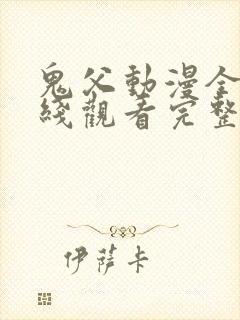 鬼父動漫全
綫觀看完整
伊薩卡